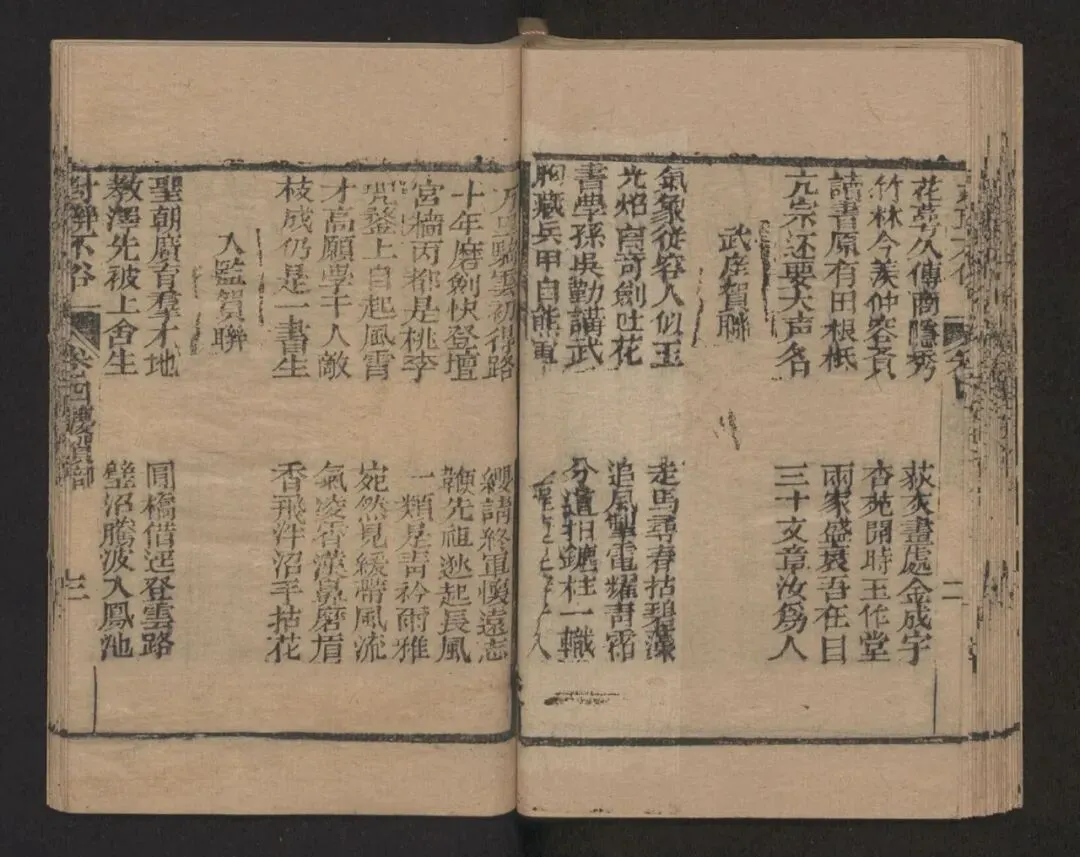 花萼久傳商隱秀
荻灰畫處金成字
竹林今羨仲容賢
杏苑開時玉作堂
讀書原有田根柢
兩家盛衰吾在目
亢宗还要大声名
三十文章汝爲人
武庠賀聯
氣象從容人似玉
走馬尋春拈碧藻
光焰奇劍吐花
追風掣電耀青霜
書學孫吳勤講武
分道一職
胸藏兵甲自熊軍
人
馬驕雲初得路
纓請終軍懷遠志
十年磨劍快登壇
鞭先祖逖起長風
宮牆丙都是桃李
一類是青衿爾雅
登上自起風雲
宛然見緩帶風流
才高願學千人敵
氣凌霄漢盾磨盾
枝成仍是一書生
香飛泮沼手拈花
入監賀聯
聖朝廣育羣才地
圜橋借逕登雲路
教澤先被上舍生
璧沼騰波入鳳池
對聯不俗
卷四慶賀部
三
二